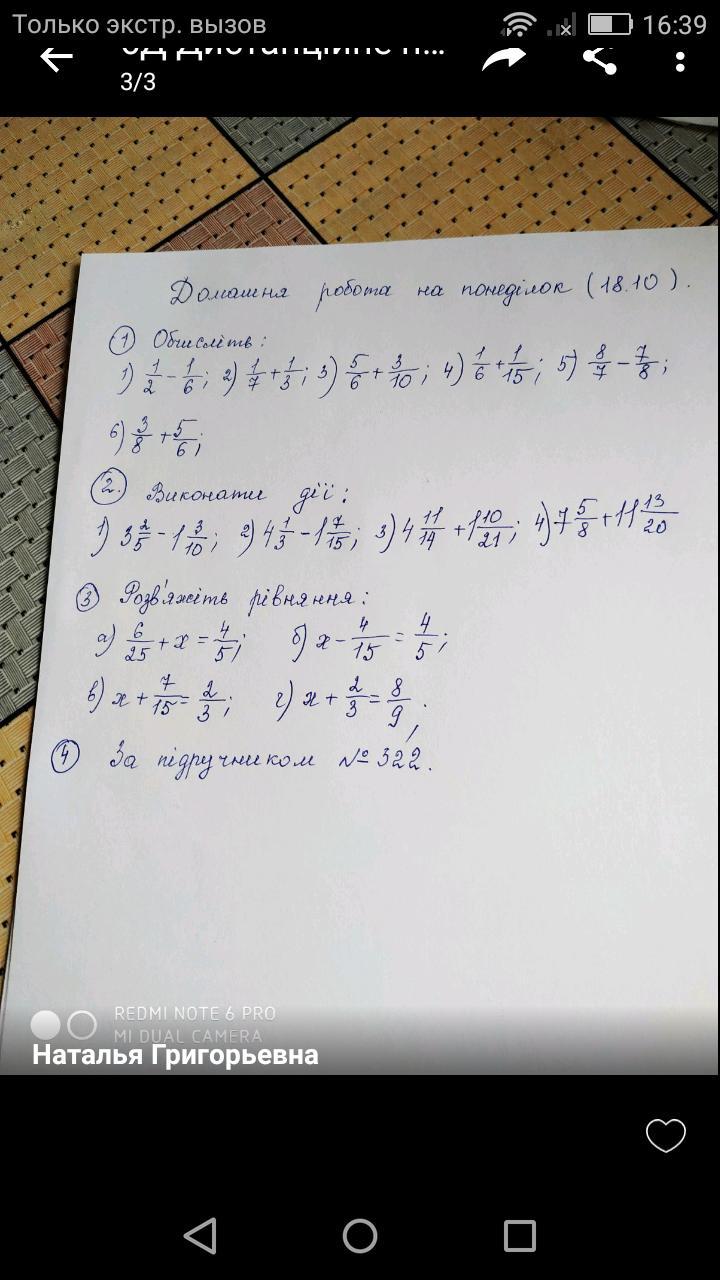 Только экстр. вызов 16:39
3/3
Домашня робота на понеділок (18.10).
① Обчисліть:
1) 1/2 - 1/6; 2) 1/7 + 1/3; 3) 5/6 + 3/10; 4) 1/6 + 1/15; 5) 8/7 - 7/8;
6) 3/8 + 5/6;
②. Виконати дії:
1) 3 2/5 - 1 3/10; 2) 4 1/3 - 1 7/15; 3) 4 11/14 + 1 10/21; 4) 7 5/8 + 11 13/20
③ Розв'яжіть рівняння:
а) 6/25 + x = 4/5; б) x - 4/15 = 4/5;
в) x + 7/15 = 2/3; г) x + 2/3 = 8/9.
④ За підручником № 322.
REDMI NOTE 6 PRO
MI DUAL CAMERA
Наталья Григорьевна